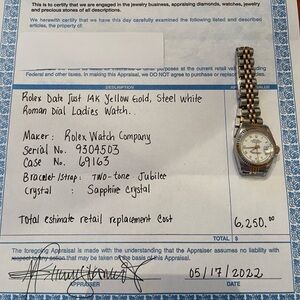 This is to certify that we are engaged in the jewelry business, appraising diamonds, watches, jewelry
and precious stones of all descriptions.
We herewith certify that we have this day carefully examined the following listed and described
articles, the property of:
at the current retail value
Federal and other taxes, in making this Appraisal, we DO NOT agree to purchase or replace
DESCRIPTION
APPRAISED VALUE
Rolex Date Just 14K Yellow Gold, Steel White
Roman Dial Ladies Watch.
Maker: Rolex Watch Company
Serial No. 9304503
Case No. 69163
Bracelet/Strap: Two-tone Jubilee
Crystal : Sapphire Crystal
Total estimate retail replacement cost
6,250.00
TOTAL $
The foregoing Appraisal is made with the understanding that the Appraiser assumes no liability with
respect to any action that may be taken on the basis of this Appraisal.
05/17/2022
APPRAISER
DATE